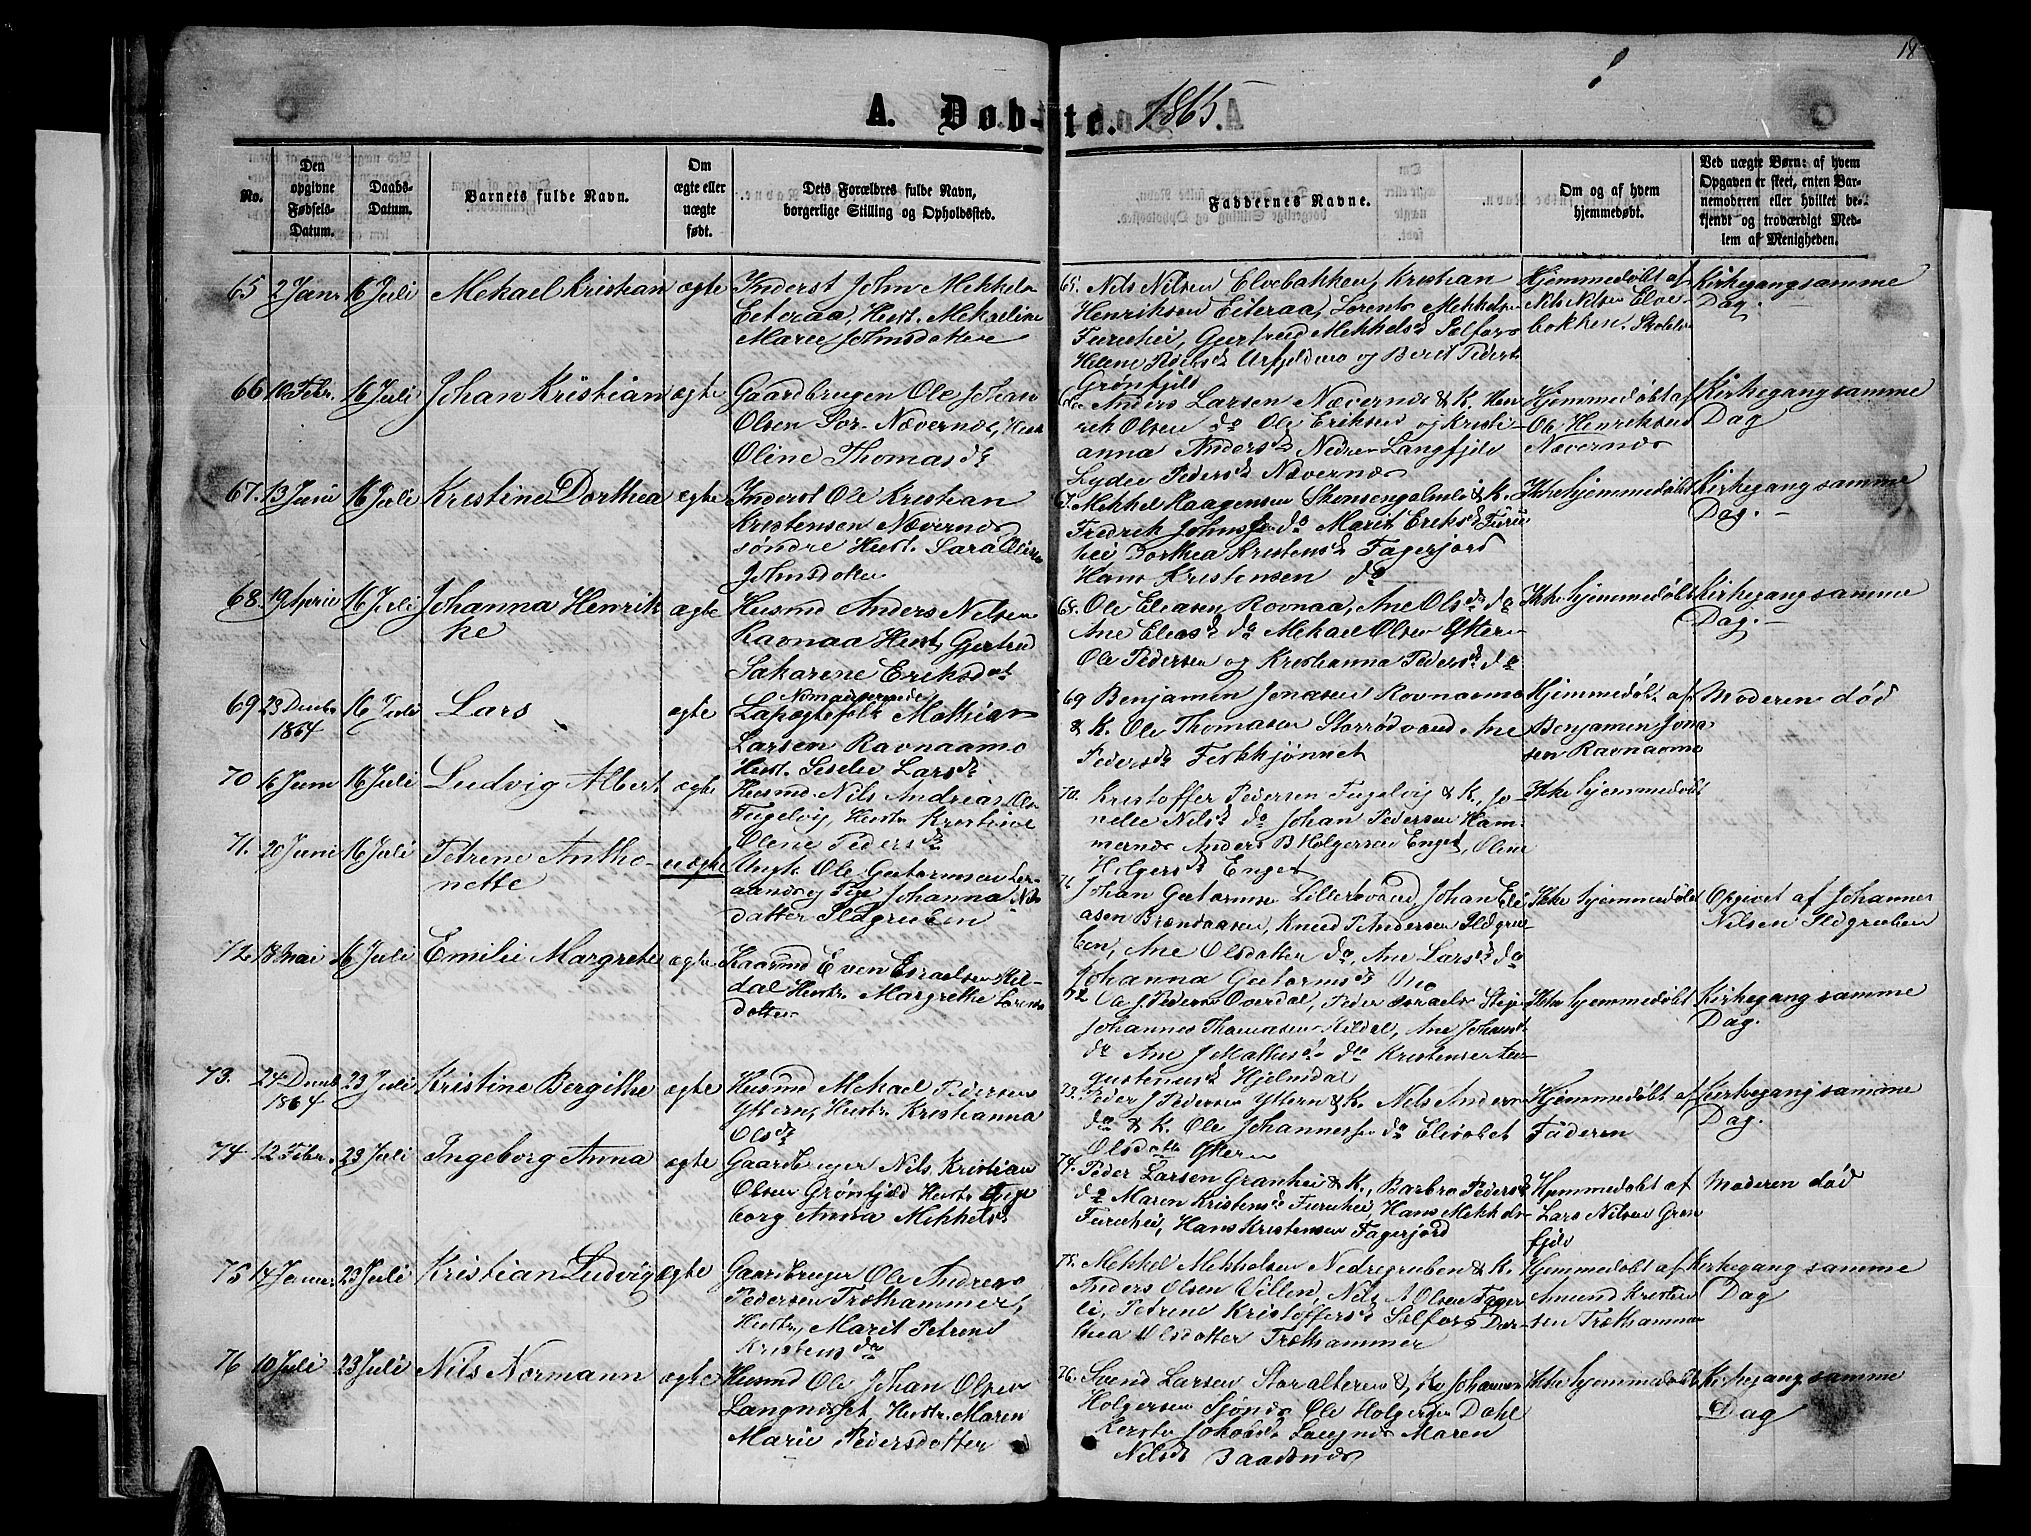 18
A. Døb-te. 1865
No.
Den opgivne Fødsels-Datum.
Daabs-Datum.
Barnets fulde Navn.
Om ægte eller uægte født.
Dets Forældres fulde Navn, borgerlige Stilling og Opholdssted.
Faddernes Navne.
Om og af hvem hjemmedøbt.
Ved uægte Børn: af hvem Opgaven er skeet, enten Barnemoderen eller hvilket bekjendt og troværdigt Medlem af Menigheden.
65 2 Jan. 16 Juli Mekael Kristian ægte Inderst John Mekkels
Eiteraa, Hust. Mekaeline
Marie Johnsdatter
65. Nils Nilsen Elvebakken, Kristian
Henriksen Eiteraa, Lorents Mekkels
Furuhei, Gjertrud Mekkelsd
og Berit Peders
Grønfjeld
Hjemmedøbt af
Nils Nilsen Elve-
bakken.
Kirkegang samme
Dag.
66 10 Febr. 16 Juli Johan Kristian ægte Gaardbruger Ole Johan
Olsen Sør-Nævernæs, Hust
Oline Thomasdr
66. Anders Larsen Nævernæs & K. Hen
rik Olsen do Ole Eriksen og Kristi-
anna Andersd Nedre Langfjeld
Lydie Pedersd Nævernæs
Hjemmedøbt af
Ole Henriksen
Nævernæs
Kirkegang samme
Dag
67. 13 Juni 16 Juli Kristine Dorthea ægte Inderst Ole Kristian
Kristensen Nævernæs
søndre Hust. Sara
Johnsdatter
67. Mekkel Haagensen & K.
Fredrik Johns do Marit Eriksd Furu
hei Dorthea Kristensd Fagerjord
Hans Kristensen do
Ikke hjemmedøbt
Kirkegang samme
Dag.
68. 19 April 16 Juli Johanna Henrik-
ke
ægte Husmd Anders Nilsen
Ravnaa Hust. Gjertrud
Sakarine Eriksdat
68. Ole Eliasen Ravnaa, Ane Olsdr do
Ane Eliasd do Mekael Olsen Yttern
Ole Pedersen og Kristianna Pedersd do
Ikke hjemmedøbt
Kirkegang samme
Dag.
69 23 Decbr 1864 16 Juli Lars ægte
Nomadiserende
Lapægtefolk Mathias
Larsen Ravnaamo
Hust. Seselie Larsdr
69 Benjamin Jonasen Ravnaamo
& K. Ole Thomasen Storrødvand Ane
Pedersd Fiskkjønnet
Hjemmedøbt af
Benjamin Jona-
sen Ravnaamo
Moderen død
70 6 Juni 16 Juli Ludvig Albert ægte Husmd Nils Andreas Ols
Fugelvig, Hustr. Kristine
Olene Pedersdr
70. Kristoffer Pedersen Fugelvig & K., Jo-
nelie Nilsd do Johan Pedersen Ham-
mernæs Anders B Holgersen Enget, Olene
Holgersd Enget
Ikke hjemmedøbt
71. 20 Juni 16 Juli Petrine Antho-
nette
uægte Ungk. Ole Guttormsen
og Pige Johanna Nils
datter Ildgruben
71 Johan Guttormsen Lillerøvand, Johan Eli-
asen Brændaasen, Knud P. Andersen Ildgru-
ben, Ane Olsdatter do, Ane Larsd do
Johanna Guttormsd
Ikke hjemmedøbt
Opgivet af Johannes
Nilsen Ildgruben
72. 13 Mai 16 Juli Emilie Margrete ægte Husmd Even Esraelsen Kil-
dal Hustr. Margrethe Lorents
datter
72 Ole J. Peders Överdal, Peder Israels
Johannes Thomassen Kildal, Ane Johansd
do Ane J Mathisd do Kristense Au-
gustinusd Hjelmdal
Ikke hjemmedøbt
Kirkegang samme
Dag.
73. 24 Decbr 1864 23 Juli Kristine Bergithe ægte Husmd Mekael Pedersen
Yttern, Hustr. Kristianna
Olsdr
73. Peder J Pedersen Yttern & K. Nils Anders
do & K. Ole Johannessen do Elisabet
Olsdatter Yttern
Hjemmedøbt af
Faderen
Kirkegang samme
Dag.
74 12 Febr. 23 Juli Ingeborg Anna ægte Gaardbruger Nils Kristian
Olsen Grønfjeld Hustr Inge
borg Anna Mekkelsd
74. Peder Larsen Granhei & K., Barbro Pedersd
do Maren Kristensd Furuhei, Hans Mekkels
Furuhei, Hans Kristensen Fagerjord
Hjemmedøbt af
Lars Nilsen Grøn
fjeld
Moderen død
75 14 Januar 23 Juli Kristian Ludvig ægte Gaardbruger Ole Andreas
Pedersen Træthammer,
Hustr., Marit Petrine
Kristensdr
75. Mekkel Mekkelsen Nedregruben & K.
Anders Olsen Villen, Nils A Olsen Fager
li, Petrine Kristoffersd Selfors Dor-
thea Olsdatter Træthammer
Hjemmedøbt af
Amund Kristen
sen Træthammer
Kirkegang samme
Dag
76 10 Juli 23 Juli Nils Normann ægte Husmd Ole Johan Olsen
Langneset, Hustr. Maren
Marie Pedersdatter
76. Svend Larsen Storalteren & K. Johannes
Holgersen Sjønes Ole Holgersen Dahl
Maren
Nilsd
Ikke hjemmedøbt
Kirkegang samme
Dag